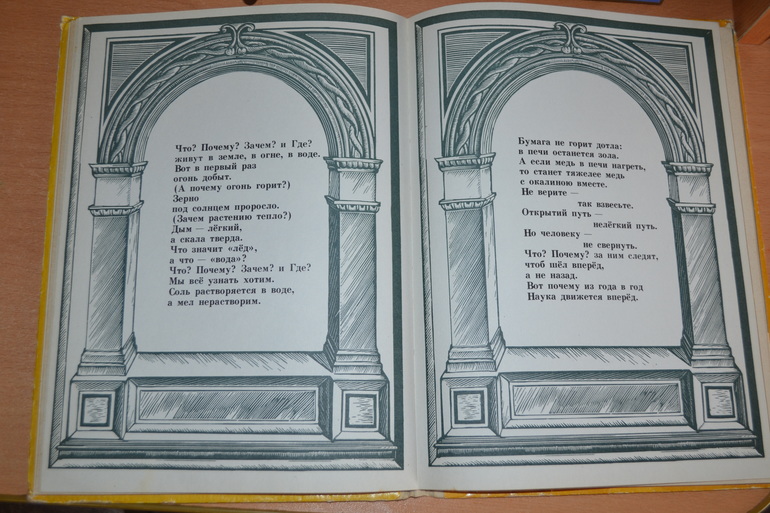 Что? Почему? Зачем? и Где?
живут в земле, в огне, в воде.
Вот в первый раз
огонь добыт.
(А почему огонь горит?)
Зерно
под солнцем проросло.
(Зачем растению тепло?)
Дым — лёгкий,
а скала тверда.
Что значит «лёд»,
а что — «вода»?
Что? Почему? Зачем? и Где?
Мы всё узнать хотим.
Соль растворяется в воде,
а мел нерастворим.
Бумага не горит дотла:
в печи останется зола.
А если медь в печи нагреть,
то станет тяжелее медь
с окалиною вместе.
Не верите —
так взвесьте.
Открытий путь —
нелёгкий путь.
Но человеку —
не свернуть.
Что? Почему? за ним следят,
чтоб шёл вперёд,
а не назад.
Вот почему из года в год
Наука движется вперёд.